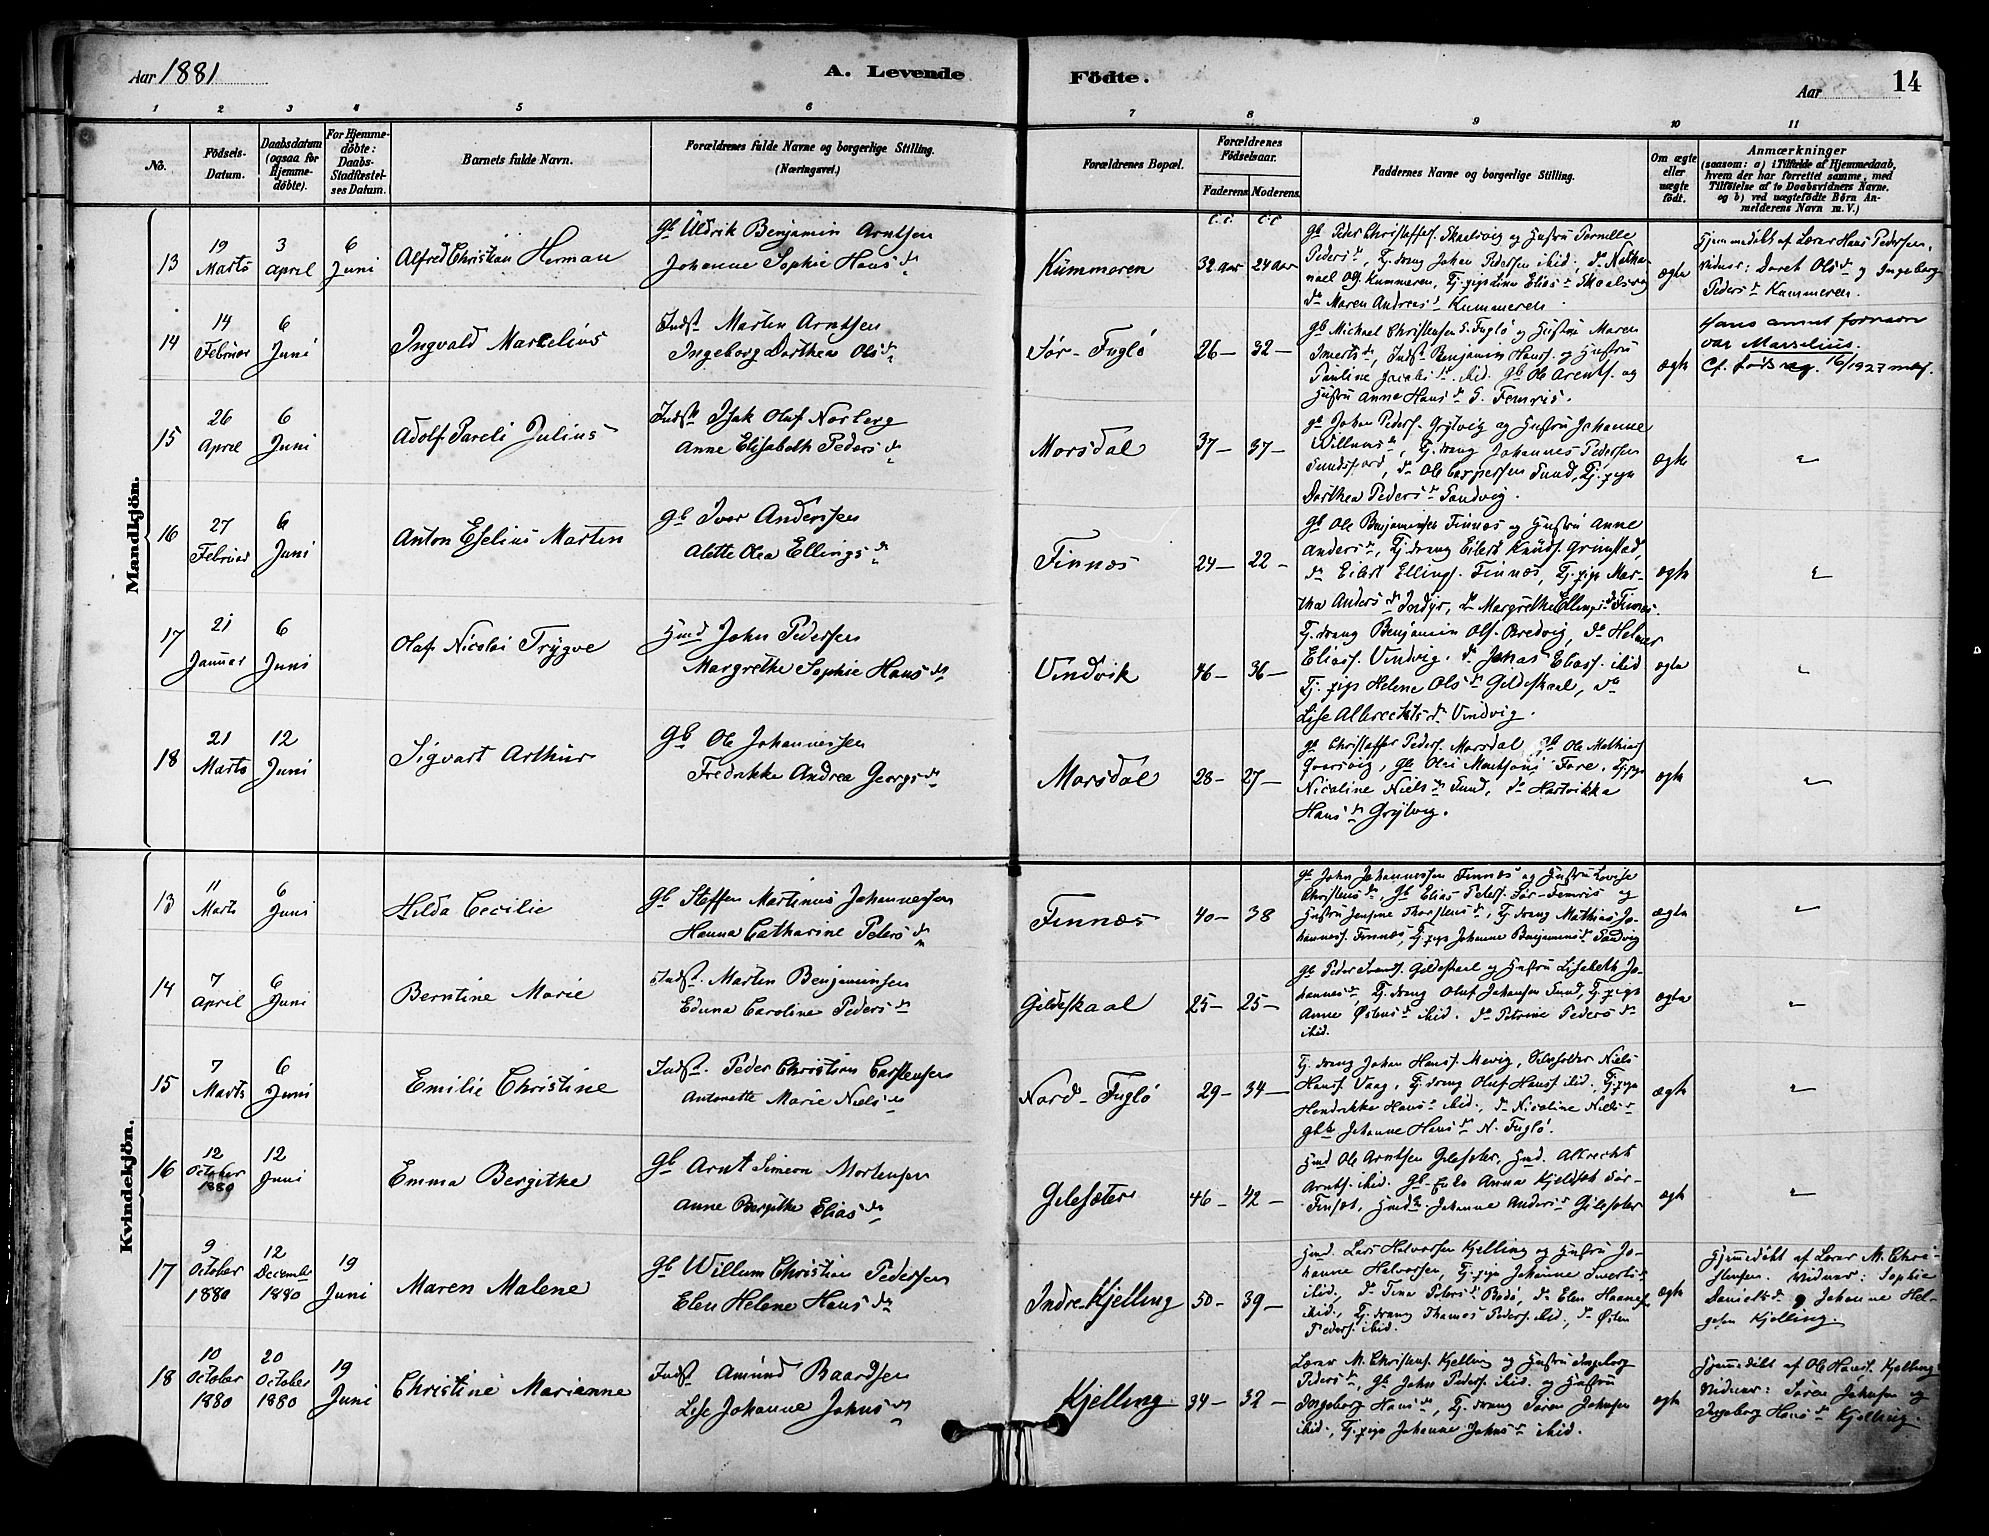 Aar 1881
A. Levende
Födte.
Aar
14
1 2 3 4 5 6 7 8 9 10 11
No.
Födsels-Datum.
Daabsdatum (ogsaa for Hjemme-döbte).
For Hjemme-döbte: Daabs-Stadfæstel-ses Datum.
Barnets fulde Navn.
Forældrenes fulde Navne og borgerlige Stilling.
(Næringsvei.)
Forældrenes Bopæl.
Forældrenes Födselsaar.
Faderens. Moderens.
Faddernes Navne og borgerlige Stilling.
Om ægte eller uægte födt.
Anmærkninger
(saasom: a) i Tilfælde af Hjemmedaab,
hvem der har forrettet samme, med
Tilföielse af to Daabsvidners Navne.
og b) ved uægtefödte Börn An-
melderens Navn m.V.)
Mandkjön.
13
19 Marts
3 April
6 Juni
Alfred Christian Herman
Gb Uldrik Benjamin Arntsen
Johanne Sophie Hans d.
Kummeren
32 aar
24 aar
Peders d., Tj. dreng Johan Pedersen ibid.,
do Maren Andreas d. Kummeren.
ægte
Hjemmedöbt af Lærer Hans Pedersen.
Vidner: Doret Ols d. og Ingeborg
Peders d. Kummeren.
14
14 Februar
6 Juni
Ingvald Marcelius
Indst Martin Arntsen
Ingeborg Dorthea Ols d.
Sör-Fuglö
26 –
32 –
Gb Michael Christensen S. Fuglö og Hustru Maren
Iverts d., Indst Benjamin Hanss. og Hustru
Pauline Jacobs d. ibid. Gb Ole Arents. og
Hustru Anne Hans d. S. Femris.
ægte
Hans annet fornavn
var Marselius.
Cf. föds reg. 16/1927
15
26 April
6 Juni
Adolf Pareli Julius
Indst Isak Oluf Norberg
Anne Elisabeth Peders d.
Morsdal
37 –
37 –
Gb Johan Peders. Grytvig og Hustru Johanne
Willums d., Tj. dreng Johannes Pedersen
Sundsfjord, do Ole Caspersen Sund, Tj. pige
Dorthea Peders d. Sandvig.
ægte
"
16
27 Februar
6 Juni
Anton Eselius Martin
Gb Iver Andersen
Alette Olea Ellings d.
Finnæs
24 –
22 –
Gb Ole Benjaminsen Finnæs og Hustru Anne
Anders d., Tj. dreng Eilert Knuds. Grimstad,
do Eilert Ellings. Finnæs, Tj. pige Mar-
tha Anders d. Indyr, do Margrethe Ellings d. Finnæs.
ægte
"
17
21 Januar
6 Juni
Olaf Nicolai Trygve
Hmd John Pedersen
Margrethe Sophie Hans d.
Vindvik
46 –
36 –
Tj. dreng Benjamin Ols. Bredvig, do Helmer
Eliass. Vindvig. do Johas Eliass. ibid
Tj. pige Helene Ols d. Gildeskaal, do
Lise Albrechts d. Vindvig.
ægte
"
18
21 Marts
12 Juni
Sigvart Arthur
Gb Ole Johannessen
Fredrikke Andrea Georgs d.
Morsdal
28 –
27 –
Gb Christoffer Peders. Morsdal, Gb Ole Mathias
Nicoline Niels d. Sund, do Hartvikka
Hans d. Grytvig.
ægte
"
Kvindekjön.
13
11 Marts
6 Juni
Hilda Cecilie
Gb Steffen Martinus Johannessen
Hanna Catharine Peters d.
Finnæs
40 –
38
Gb John Johannessen Finnæs og Hustru Lovise
Christens d., Gb Elias Peders. Sör-Femris og
Hustru Jensine Thorstens d., Tj. dreng Mathias Jo-
hanness. Finnæs, Tj. pige Johanne Benjamins d. Sandvig
ægte
"
14
7 April
6 Juni
Berntine Marie
Indst. Martin Benjaminsen
Edina Caroline Peders d.
Gildeskaal
25 –
25 –
Gb Peder Gildeskaal og Hustru Lisabeth Jo-
hannes d., Tj. dreng Oluf Johansen Sund, Tj. pige
Anne Östens d. ibid. do Petrine Peders d.
ibid.
ægte
"
15
7 Marts
6 Juni
Emilie Christine
Indst. Peder Christian Carstensen
Antonette Marie Niels d.
Nord-Fuglö
29 –
34 –
Tj. dreng Johan Hanss. Mevig, Niels
Hanss. Vaag, Tj. dreng Oluf Hanss. ibid., Tj. pige
Hendrikke Hans d. ibid., do Nicoline Niels d.
Johanne Hans d. N. Fuglö.
ægte
"
16
12 October 1880
12 Juni
Emma Bergitke
Gb Arnt Simeon Mortensen
Anne Bergitke Elias d.
Gilesæter
46 –
42 –
Hmd Ole Arntsen Gilesæter, Hmd. Albrecht
Arnts. ibid. Anna Kjeldsd. Sör-
Johanne Anders d. Gilesæter
ægte
"
17
9 October 1880
12 December 1880
19 Juni
Maren Malene
Gb Willum Christian Pedersen
Elen Helene Hans d.
Indre Kjelling
50 –
39 –
Hmd. Lars Halvorsen Kjelling og Hustru Jo-
hanne Helvorsen, Tj. pige Johanne Siverts d.
ibid., do Tina Peters d. Bodö, do Elen Hans d.
ibid., Tj. dreng Thomas Peders. ibid., do Östen
Peders. ibid.
ægte
Hjemmedöbt af Lærer M. Chri-
stensen. Vidner: Sophie
Daniels d. og Johanne Hel-
gesen Kjelling.
18
10 October 1880
20 October 1880
19 Juni
Christine Marianne
Indst Amund Baardsen
Lise Johanne Johns d.
Kjelling
34 –
32 –
Lærer M. Christens. Kjelling og Hustru Ingeborg
Peders d., Gb John Peders. ibid. og Hustru
Ingeborg Hans d., Tj. dreng Sören Johnsen
ibid., Tj. pige Johanne Johns d. ibid.
ægte
Hjemmedöbt af Ole Hanss. Kjelling
Vidner: Sören Johnsen og
Ingeborg Hans d. Kjelling.